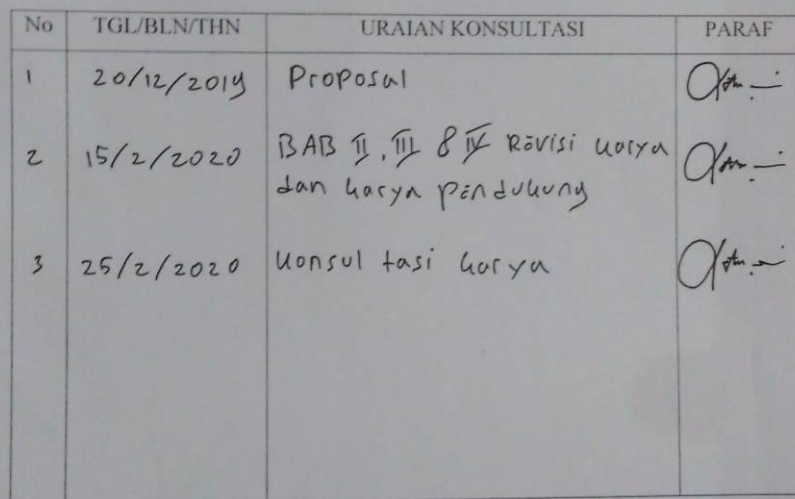 No TGL/BLN/THN URAIAN KONSULTASI PARAF
1 20/12/2019 Proposal
2 15/2/2020 BAB II, III & IV Revisi karya
dan karya pendukung
3 25/2/2020 Konsultasi karya